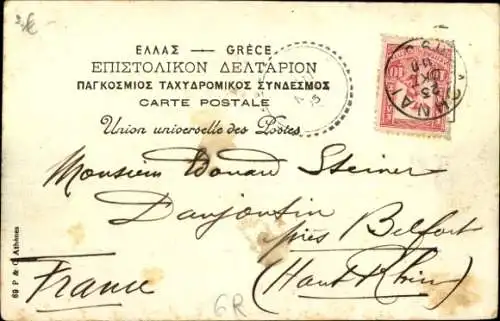 ΕΛΛΑΣ — GRÈCE
ΕΠΙΣΤΟΛΙΚΟΝ ΔΕΛΤΑΡΙΟΝ
ΠΑΓΚΟΣΜΙΟΣ ΤΑΧΥΔΡΟΜΙΚΟΣ ΣΥΝΔΕΣΜΟΣ
CARTE POSTALE
Union universelle des Postes
10
ΑΘΗΝΑΙ
23
Monsieur Edouard Steiner
Danjoutin
près Belfort
(Haut Rhin)
France
69 P & C Athènes
6R